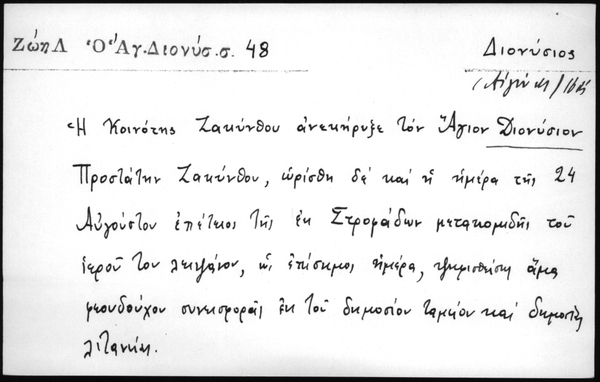 Ζώη Λ Ὁ Ἅγ. Διονύσ. σ. 48
Διονύσιος
Αἰγίνης
Ἡ Κοινότης Ζακύνθου ἀνεκήρυξε τὸν Ἅγιον Διονύσιον
Προστάτην Ζακύνθου, ὡρίσθη δέ καὶ ἡ ἡμέρα τῆς 24
Αὐγούστου ἐπέτειος τῆς ἐκ Στροφάδων μετακομιδῆς τοῦ
ἱεροῦ του λειψάνου, ὡς ἐπίσημος ἡμέρα, ψηφισθείσης ἅμα
συνεισφορᾶς ἐκ τοῦ δημοσίου ταμείου καὶ δημοσίας
λιτανείας.